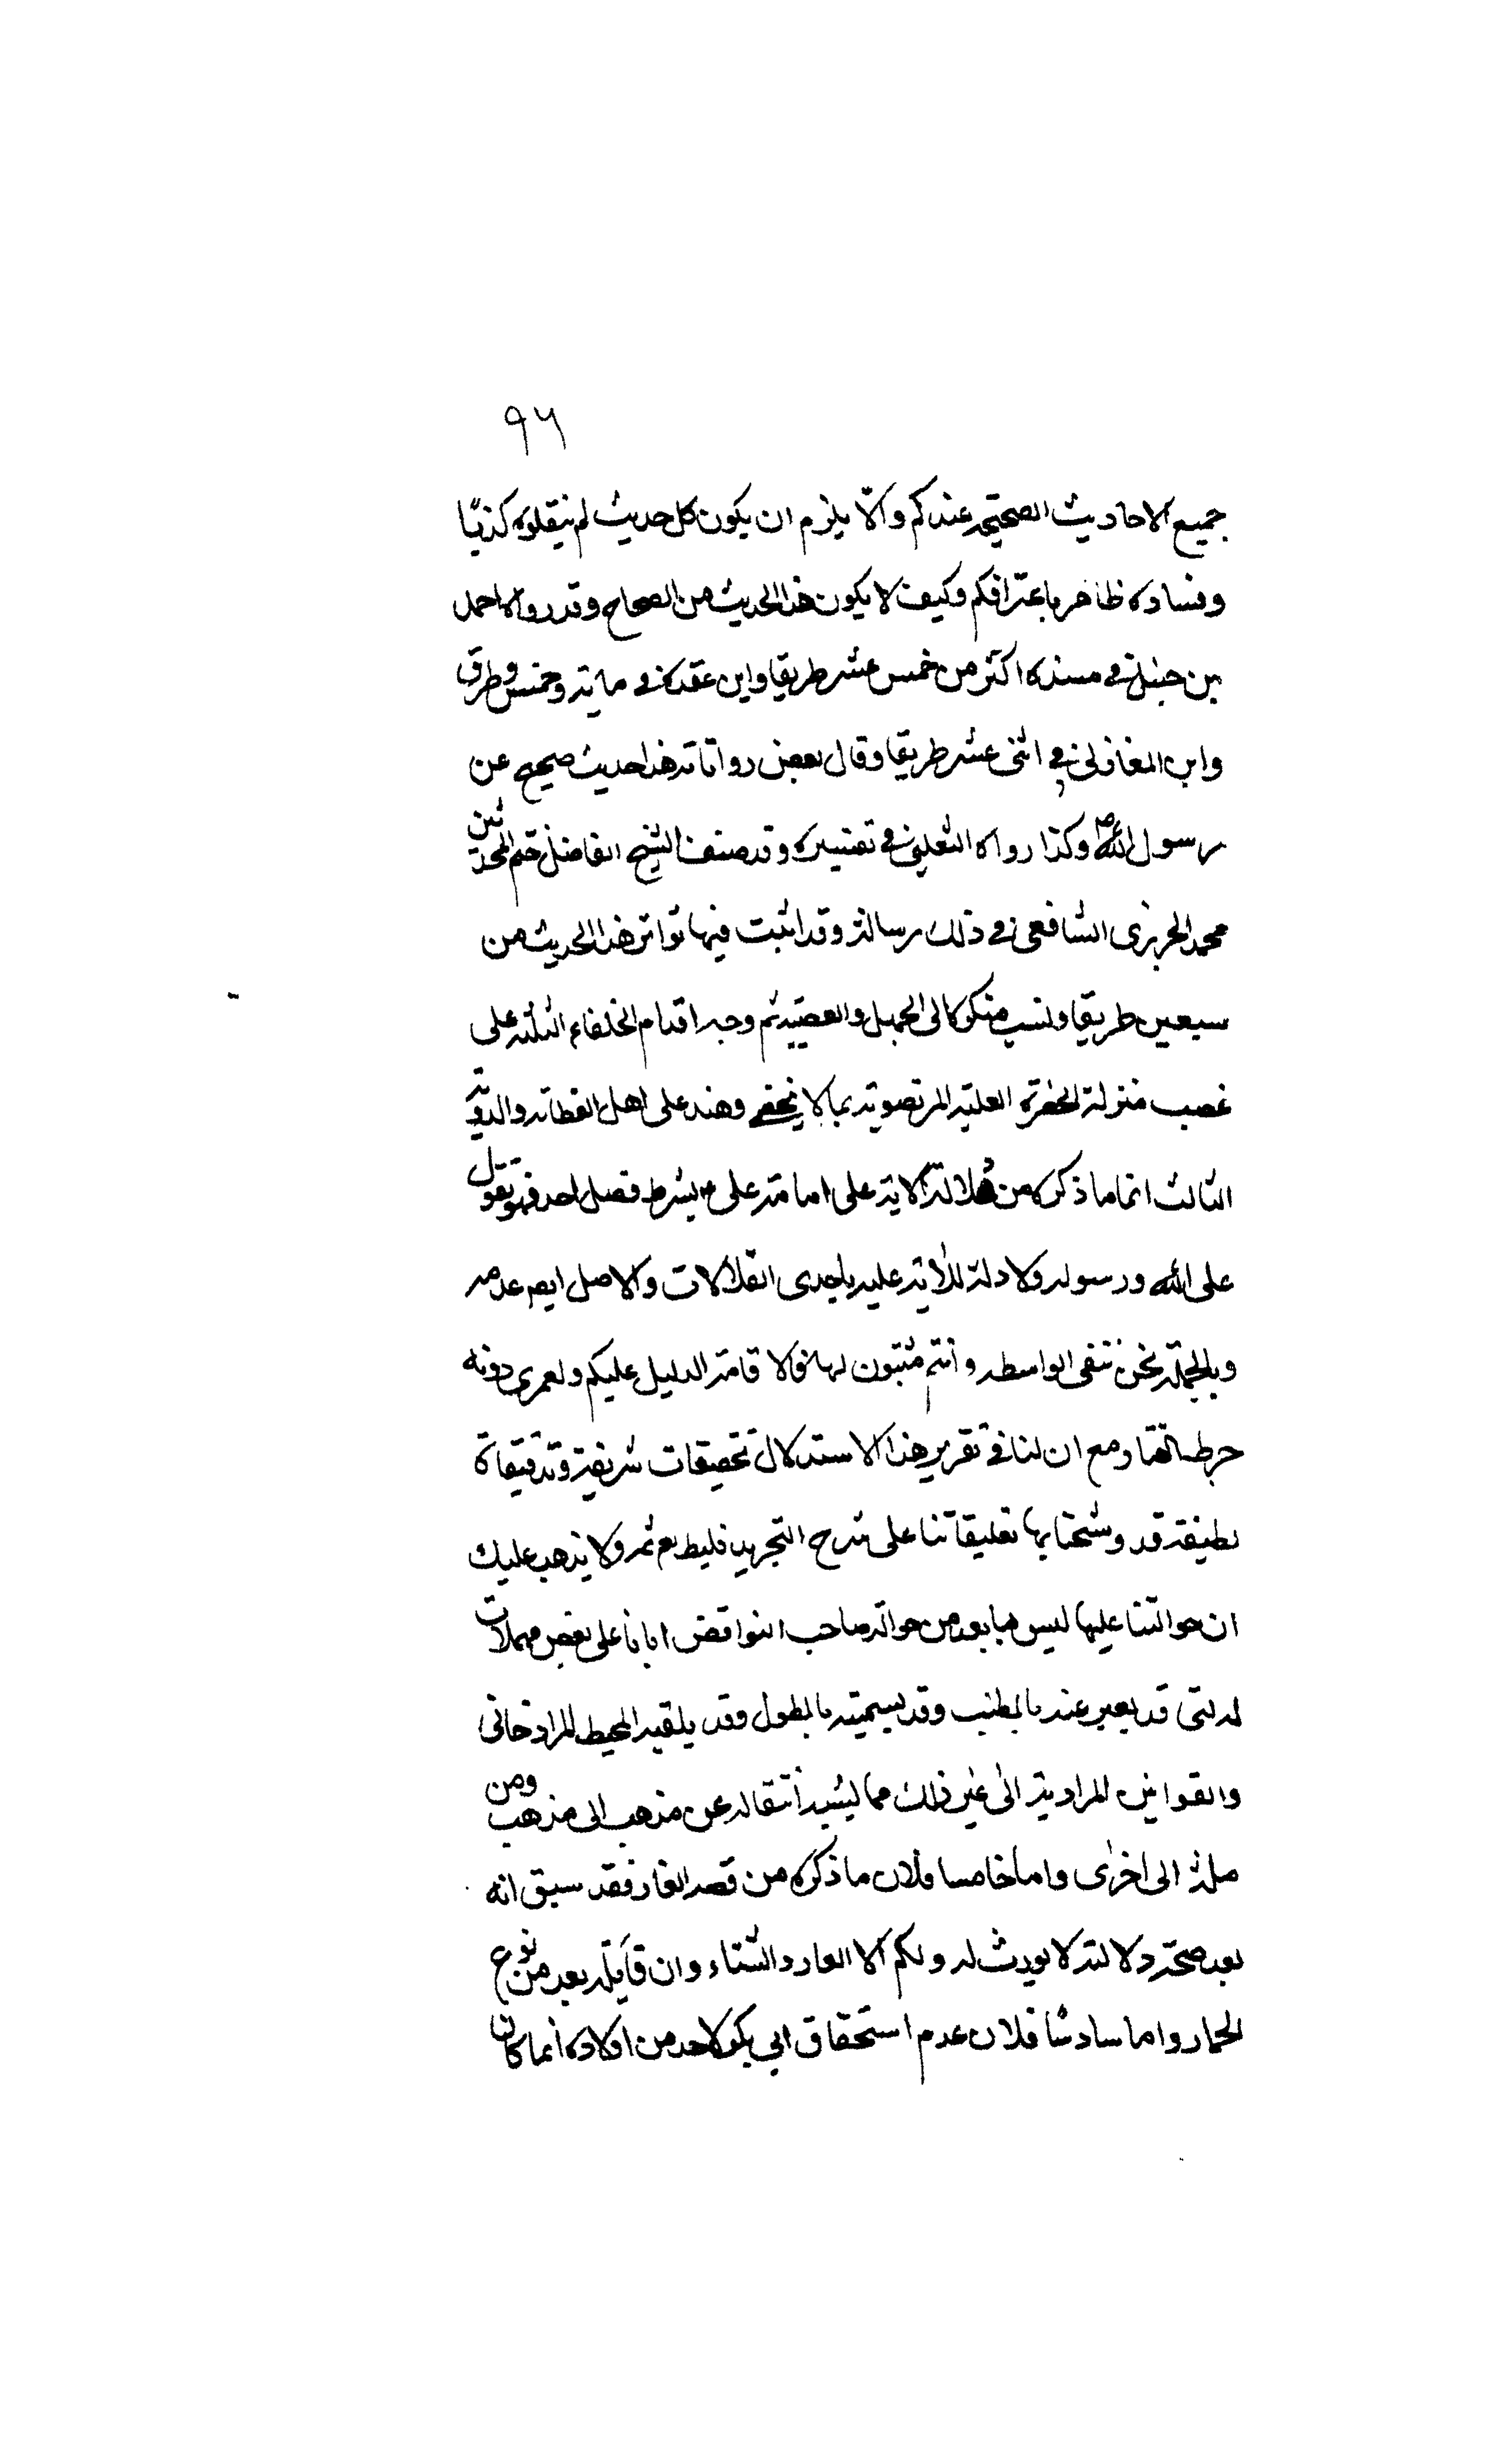 ٩٦
جميع الاحاديث الصحيحه عندكم والّا يلزم ان يكون كل حديث لم ينقلوه كذبًا
وفساده ظاهر باعترافكم وكيف لا يكون هذا الحديث من الصحاح وقد رواه احمد
بن حنبل في مسنده اكثر من خمس عشر طريقا وابن عقده في مايته وخمس طرق
وابن المغازلي في اثنى عشر طريقا وقال بعض رواتاته هذا حديث صحيح عن
رسول الله ص وكذا رواه الثعلبي في تفسيره وقد صنف الشيخ الفاضل المحدثين
محمد الجزري الشافعي في ذلك رسالة وقد اثبت فيها تواتر هذا الحديث من
سبعين طريقا ونسب منكره الى الجهل والعصبيه ثم وجه اقدام الخلفاء الثلثه على
غصب منزلة الحضرة العليه المرتضويه بما لا يخفى وهنه على اهل الفطانه والدويه
الثالث انما ما ذكره من دلالة الاية على امامته على ع بشرط فصل احد فهو تقول
على الله ورسوله ولا دلة للاية عليه باحدى الدلالات والاصل ايضم عدمه
وبالجملة نحن ننفى الواسطه وانتم مثبتون لها فالاقامة الدليل عليكم ولعمرى دونه
خرط القتاد ومع ان لنا في تقرير هذا الاستدلال تحقيقات شريفة وتدقيقاة
لطيفة قد وشحنا بها تعليقاتنا على شرح التجريد فليطالع ثمه ولا يذهب عليك
ان حوالتنا عليها ليس بابعد من حوالة صاحب النواقض ايانا على بعض مهملات
له التى قد يعبر عنه بالمطنب وقد يسميه بالمطول وقد يلقبه المحيط المرادخانى
والقوانين المرادية الى غير ذلك مما يشيد انتقاله عن مذهب الى مذهب ومن
ملة الى اخرى واما خامسا فلان ما ذكره من قصه الغار فقد سبق انه
بعد صحة دلالته لا يورث له ولكم الا العار والشناء وان قايله بعد من نوع
الحمار واما سادسا فلان عدم استحقاق ابي بكر لاحد من اولاده انما كان